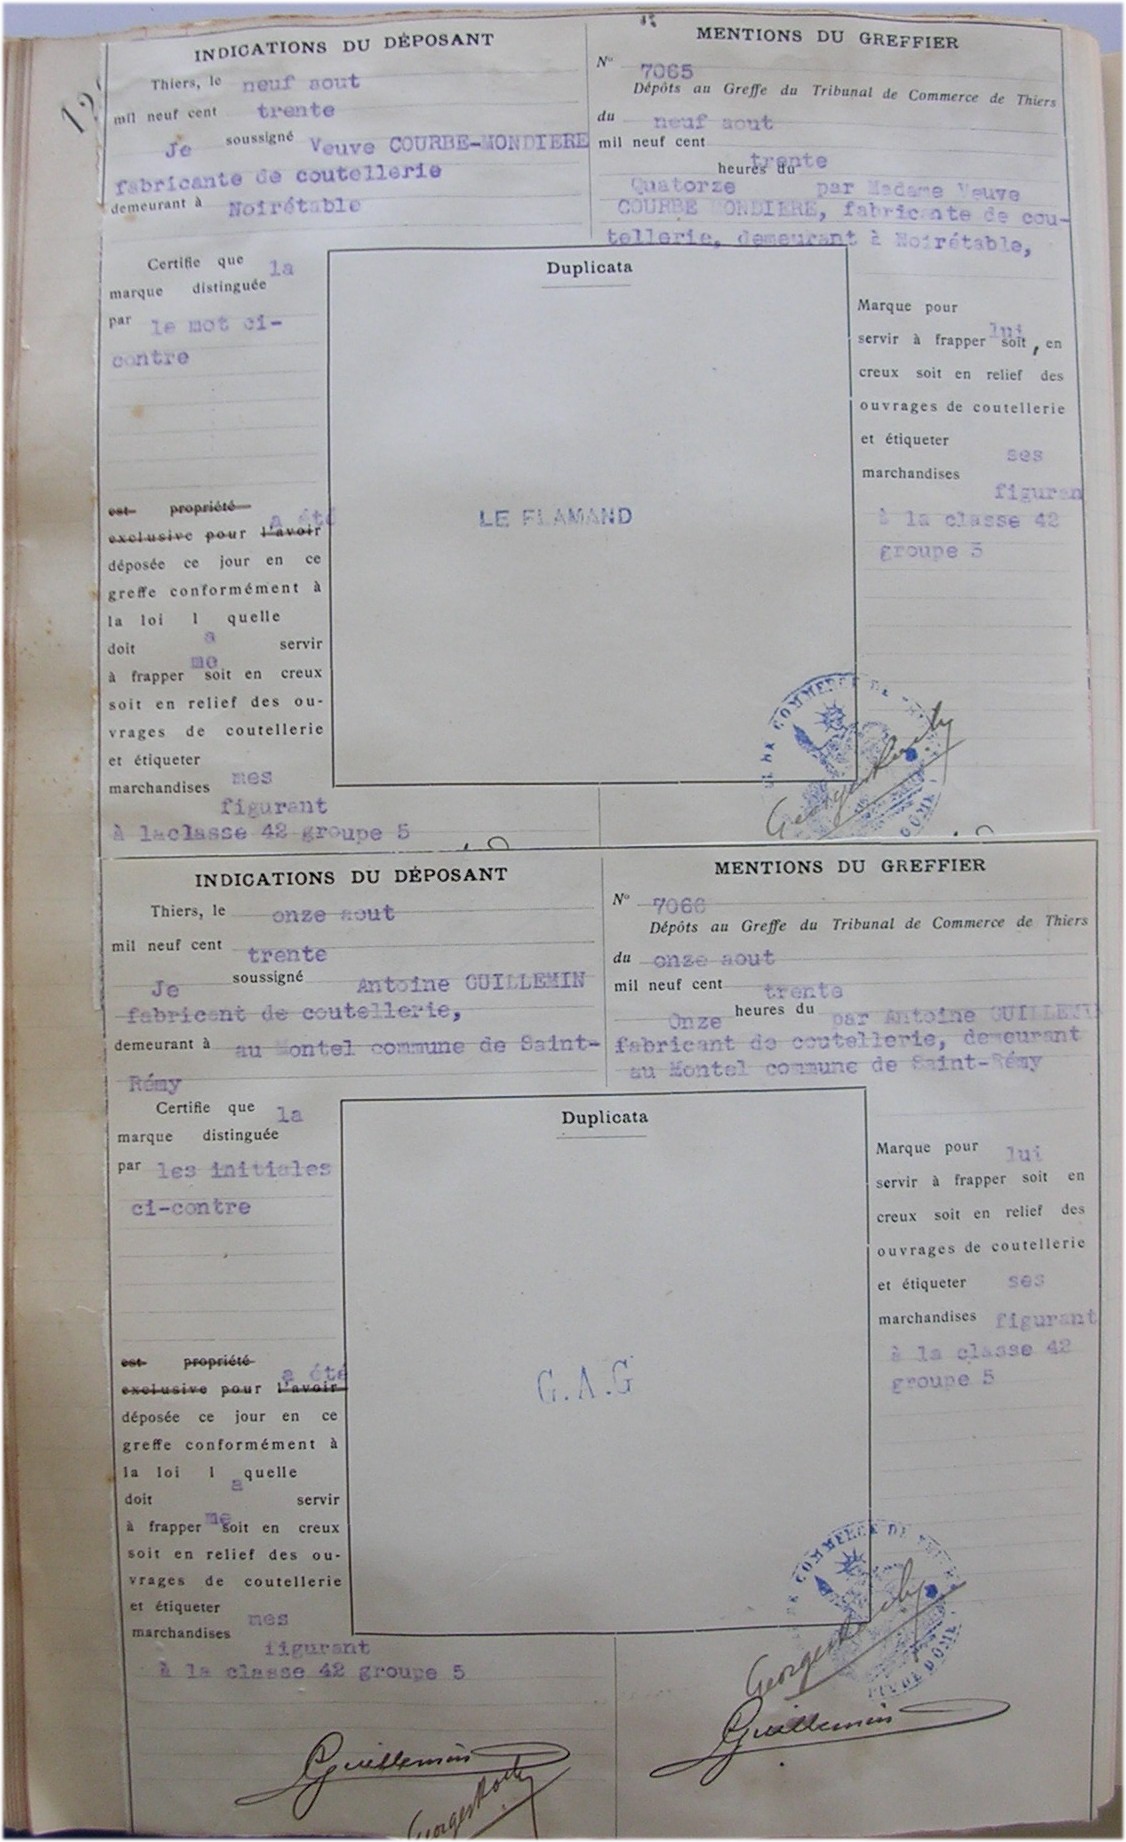 INDICATIONS DU DÉPOSANT
Thiers, le neuf aout
mil neuf cent trente
Je soussigné Veuve COURBE-MONDIERE
fabricante de coutellerie
demeurant à Noirétable
MENTIONS DU GREFFIER
N° 7065
Dépôts au Greffe du Tribunal de Commerce de Thiers
du neuf aout
mil neuf cent trente
Quatorze heures du par Madame Veuve
COURBE MONDIERE, fabricante de cou-
tellerie, demeurant à Noirétable,
Certifie que la
marque distinguée
par le mot ci-
contre
est propriété
exclusive pour l'avoir a été
déposée ce jour en ce
greffe conformément à
la loi l a quelle
doit servir
à frapper me soit en creux
soit en relief des ou-
vrages de coutellerie
et étiqueter mes
marchandises figurant
à laclasse 42 groupe 5
Duplicata
LE FLAMAND
Marque pour lui
servir à frapper soit, en
creux soit en relief des
ouvrages de coutellerie
et étiqueter ses
marchandises figuran
à la classe 42
groupe 5
COMMERCE DE
INDICATIONS DU DÉPOSANT
Thiers, le onze aout
mil neuf cent trente
Je soussigné Antoine GUILLEMIN
fabricant de coutellerie,
demeurant à au Montel commune de Saint-
Rémy
MENTIONS DU GREFFIER
N° 7066
Dépôts au Greffe du Tribunal de Commerce de Thiers
du onze aout
mil neuf cent trente
Onze heures du par Antoine GUILLEMI
fabricant de coutellerie, demeurant
au Montel commune de Saint-Rémy
Certifie que la
marque distinguée
par les initiales
ci-contre
est propriété
exclusive pour l'avoir a été
déposée ce jour en ce
greffe conformément à
la loi l a quelle
doit servir
à frapper me soit en creux
soit en relief des ou-
vrages de coutellerie
et étiqueter mes
marchandises figurant
à la classe 42 groupe 5
Duplicata
G.A.G
Marque pour lui
servir à frapper soit en
creux soit en relief des
ouvrages de coutellerie
et étiqueter ses
marchandises figurant
à la classe 42
groupe 5
DE COMMERCE DE THIERS
PUY DE DOME
Guillemin
Guillemin